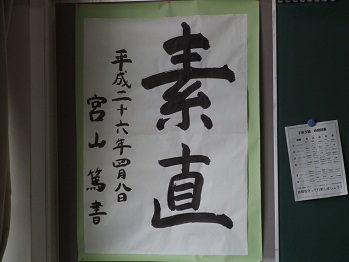 素直
平成二十六年四月八日
宮山篤書